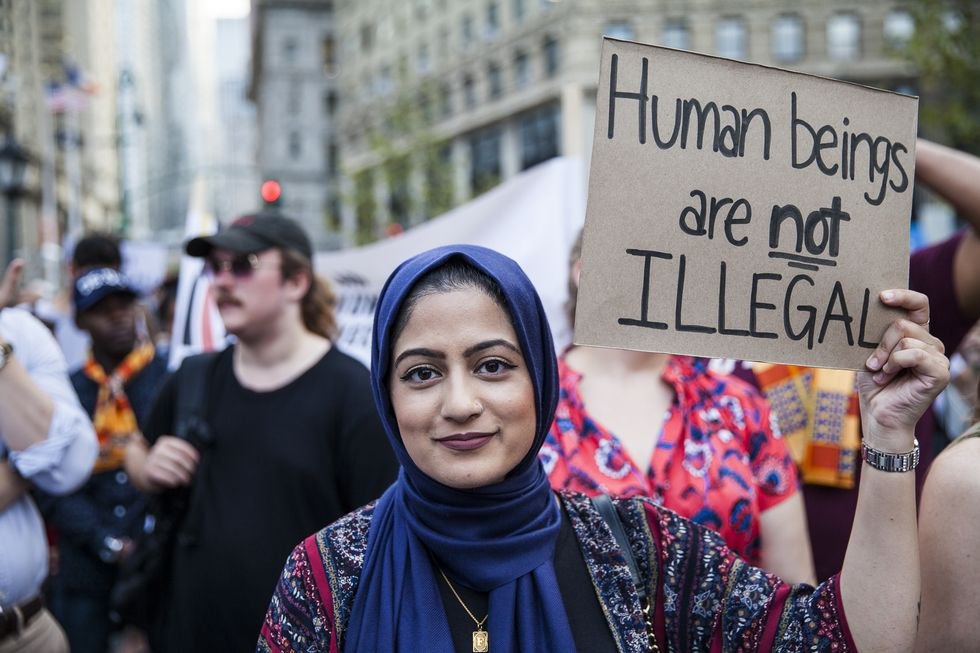 Human beings
are not
ILLEGAL